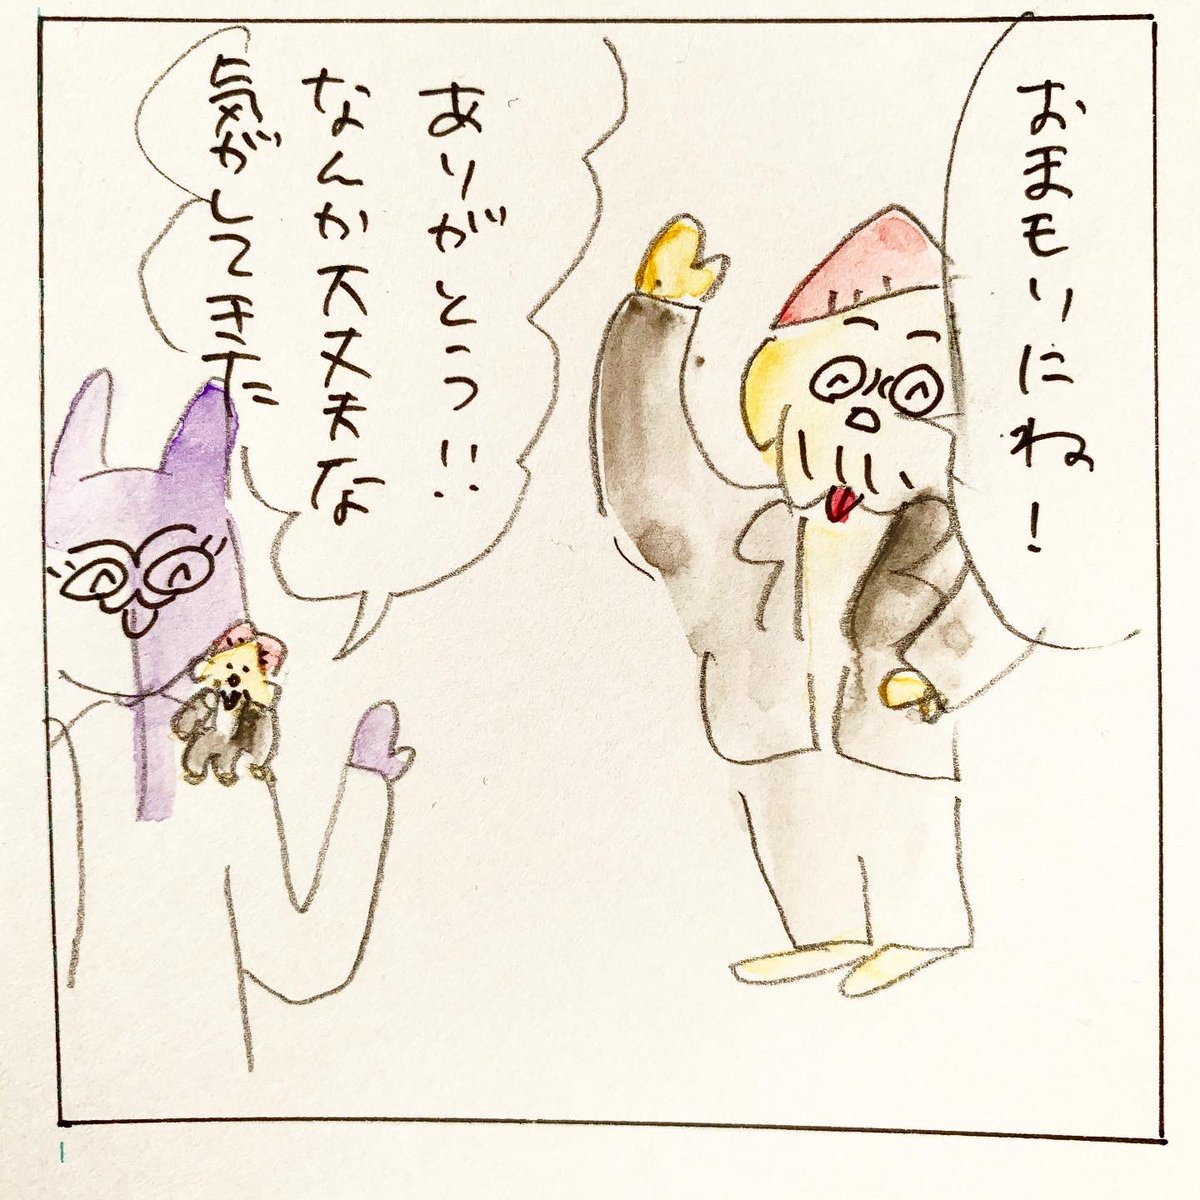 おまモリにね!
ありがとう!!
なんか大丈夫な
気がしてきた